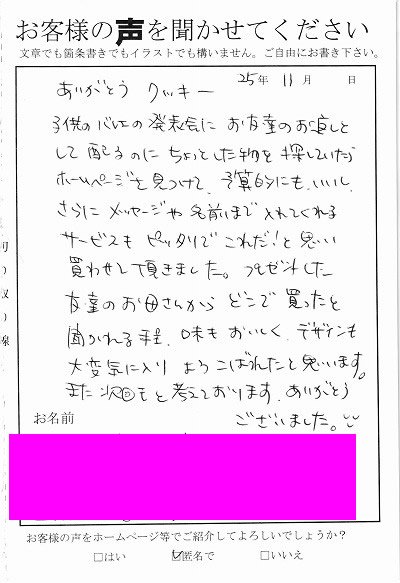 お客様の声を聞かせてください
文章でも箇条書きでもイラストでも構いません。ご自由にお書き下さい。
25年 11月 日
ありがとう クッキー
子供のバレエの発表会に お友達のお返しと
して 配るのに ちょっとした物を 探していたら
ホームページを見つけて、予算的にも、いいし、
さらに メッセージや名前まで 入れてくれる
サービスも ピッタリで これだ!と 思い
買わせて頂きました。 プレゼントした
友達の お母さんから どこで 買ったと
聞かれる程、味も おいしく、デザインも
大変気に入り よろこばれたと思います。
また 次回もと 考えております。ありがとう
ございました。
お名前
お客様の声をホームページ等でご紹介してよろしいでしょうか?
□はい ☑匿名で □いいえ